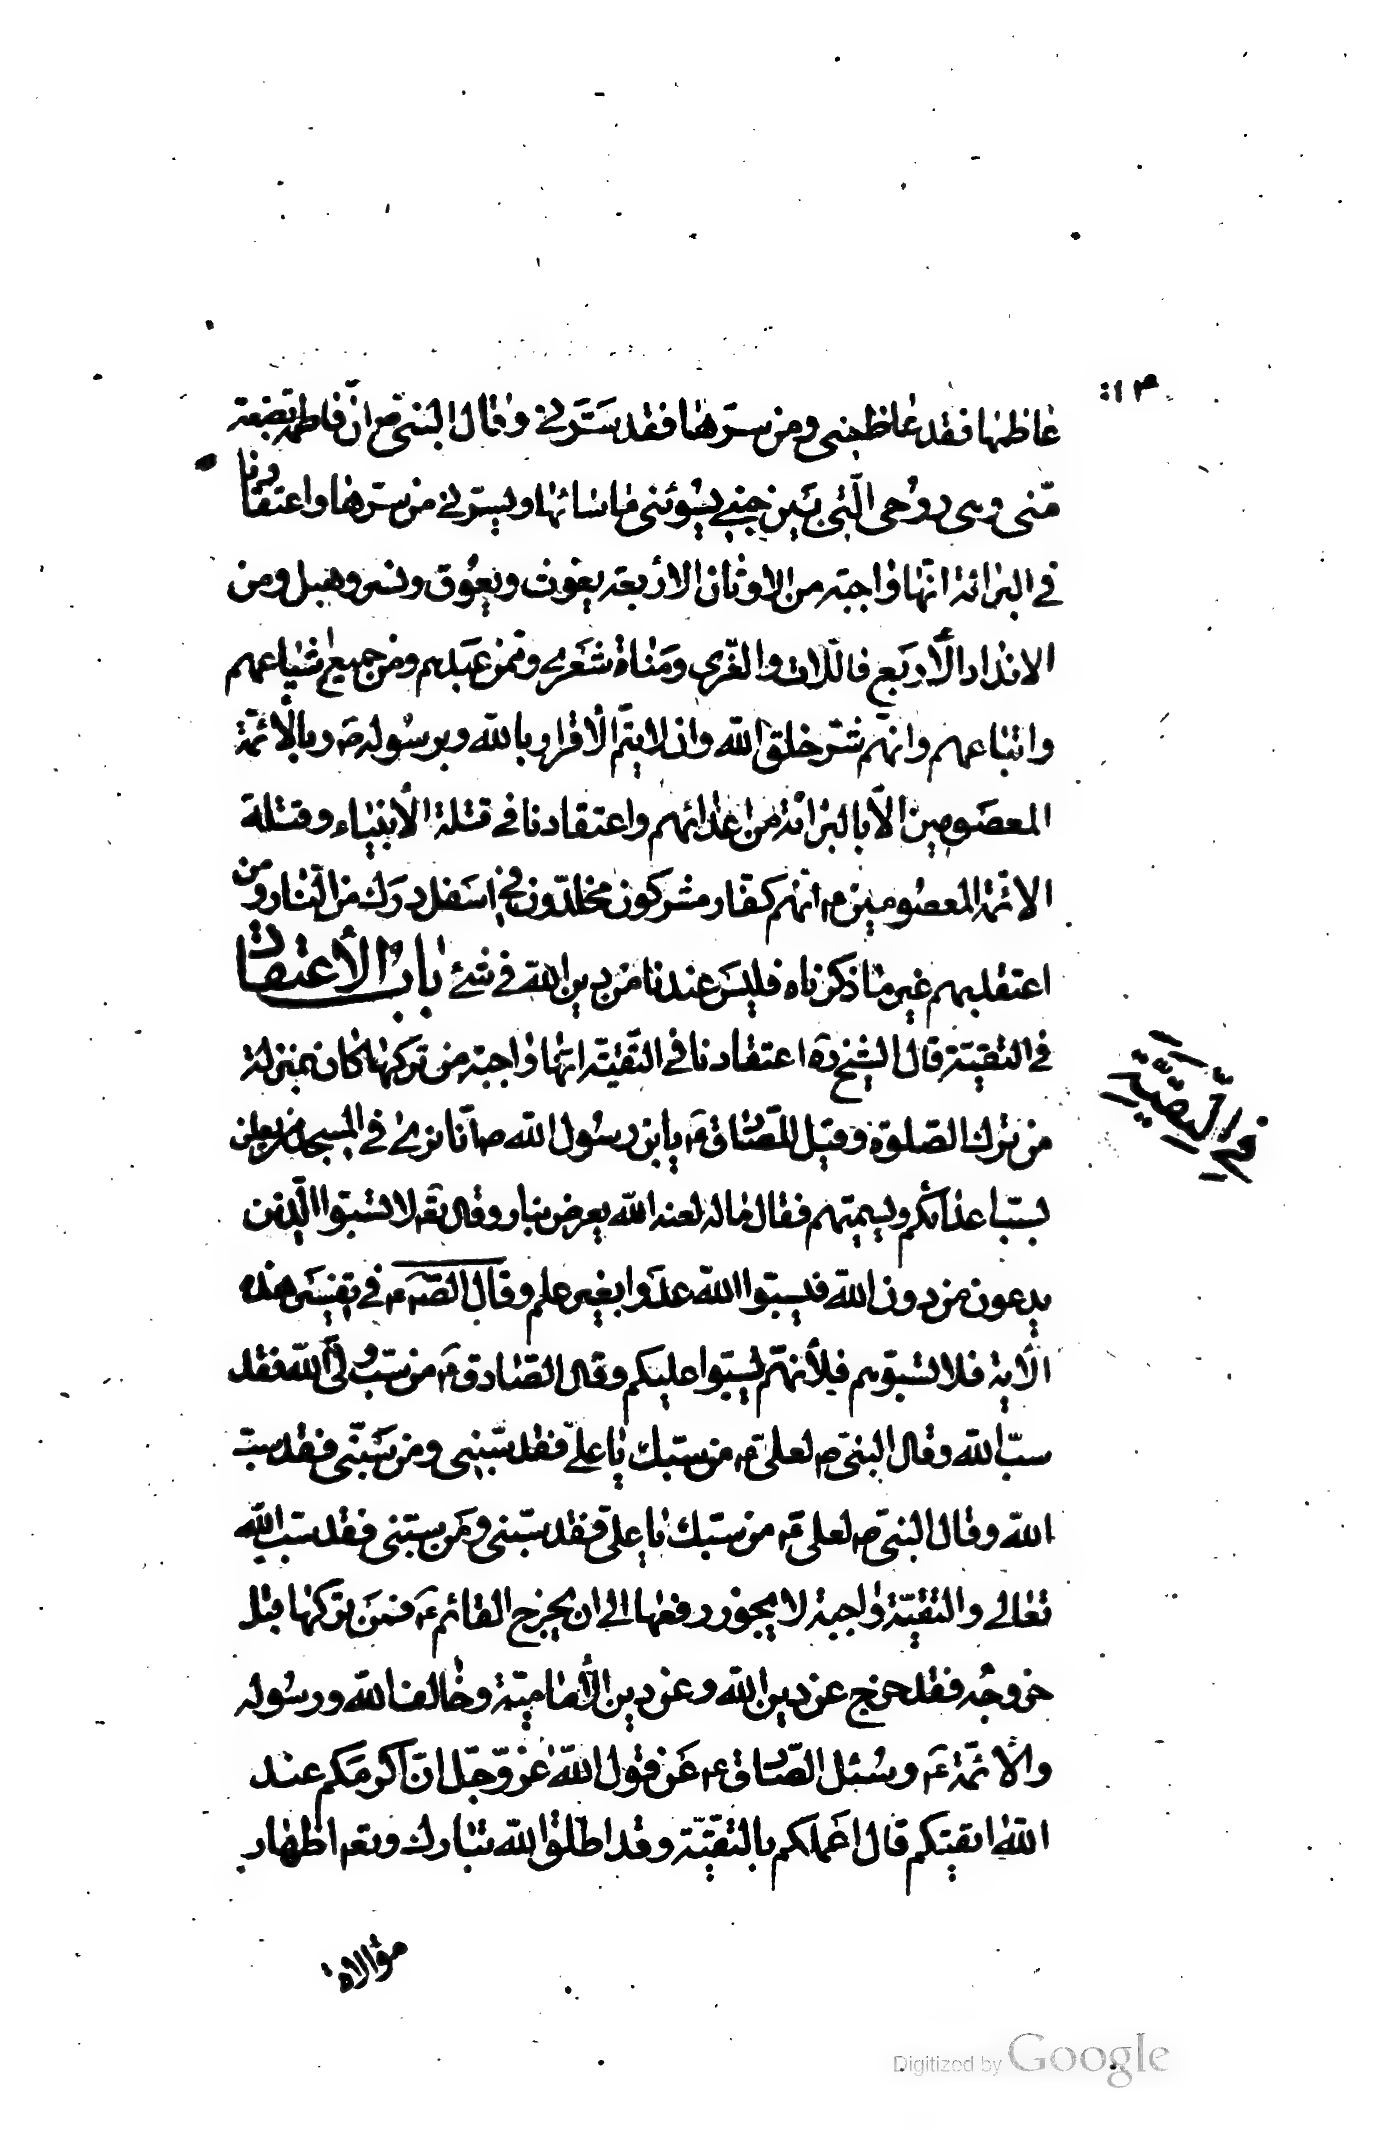 غاظها فقد غاظني ومن سرّها فقد سَرَّني وقال النبيّ ص انّ فاطمة بضعة
منّي وهي روُحي الّتي بَين جنبي يسُوئني ما سائها ويسرّني من سرّها واعتقادنا
في البرائة انّها واجبة من الاوثان الاربعة يغوث ويعُوق ونسر وهبل ومن
الانداد الأربَع فاللات والعُزّى ومَناة شعَرى وممّن عبَدهم ومن جميع اشياعهم
واتباعهم وانّهم شرّ خلق اللّه وان لا يتمّ الاقرار باللّه وبرسُوله ص وبالأئمّة
المعصَومين الّا بالبرائة من اعدائهم واعتقادنا في قتلة الأنبياء وقتلة
الائمّة المعصُومين م انّهم كفّار مشركون مخلّدون في اسَفل درَك من النّار ومن
اعتقد بهم غير ما ذكرناه فليسَ عندنا من دين اللّه في شئ باب الأعتقاد
في التقيّة قال الشيخ ره اعتقادنا في التّقيّة انّها واجبة من تركها كان بمنزلة
من ترك الصّلوة وقيل للصّادق ع يا بن رسُول اللّه ص انّا نرى في المسجد من يعلن
بسبّ اعدائكم ويسميّهم فقال ما له لعنه اللّه يعرض بنا وقال تع لا تسّبوا الّذين
يدعون من دون اللّه فيسبّوا اللّه عدوا بغير علم وقال الصّ م في تفسَير هذه
الآية فلا تسّبوهم فلأنهّم يسبّوا عليكم وقال الصّادق ع من سبّ ولىّ اللّه فقد
سبّ اللّه وقال النبيّ ص لعلىّ ع من سبّك يا علىّ فقد سبّني ومن سَبّني فقد سبّ
اللّه وقال النبيّ ص لعلي ع من سبّك يا علىّ فقد سبّني ومَن سبّني فقد سّب اللّه
تعالى والتقيّة واجبة لا يجوز رفعها الى ان يخرج القائم ع فمَن تركها قبل
خروجُه فقد خرج عن دين اللّه وعن دين الأماميّة وخالف اللّه ورسُوله
والائمّة ع وسُئل الصّادق ع عَن قول اللّه عز وجّل انّ اكرمَكم عند
اللّه اتقيكم قال اعَملكم بالتقيّة وقد اطلق اللّه تبارك وتع اظهار
موالاة
في التّقيّة